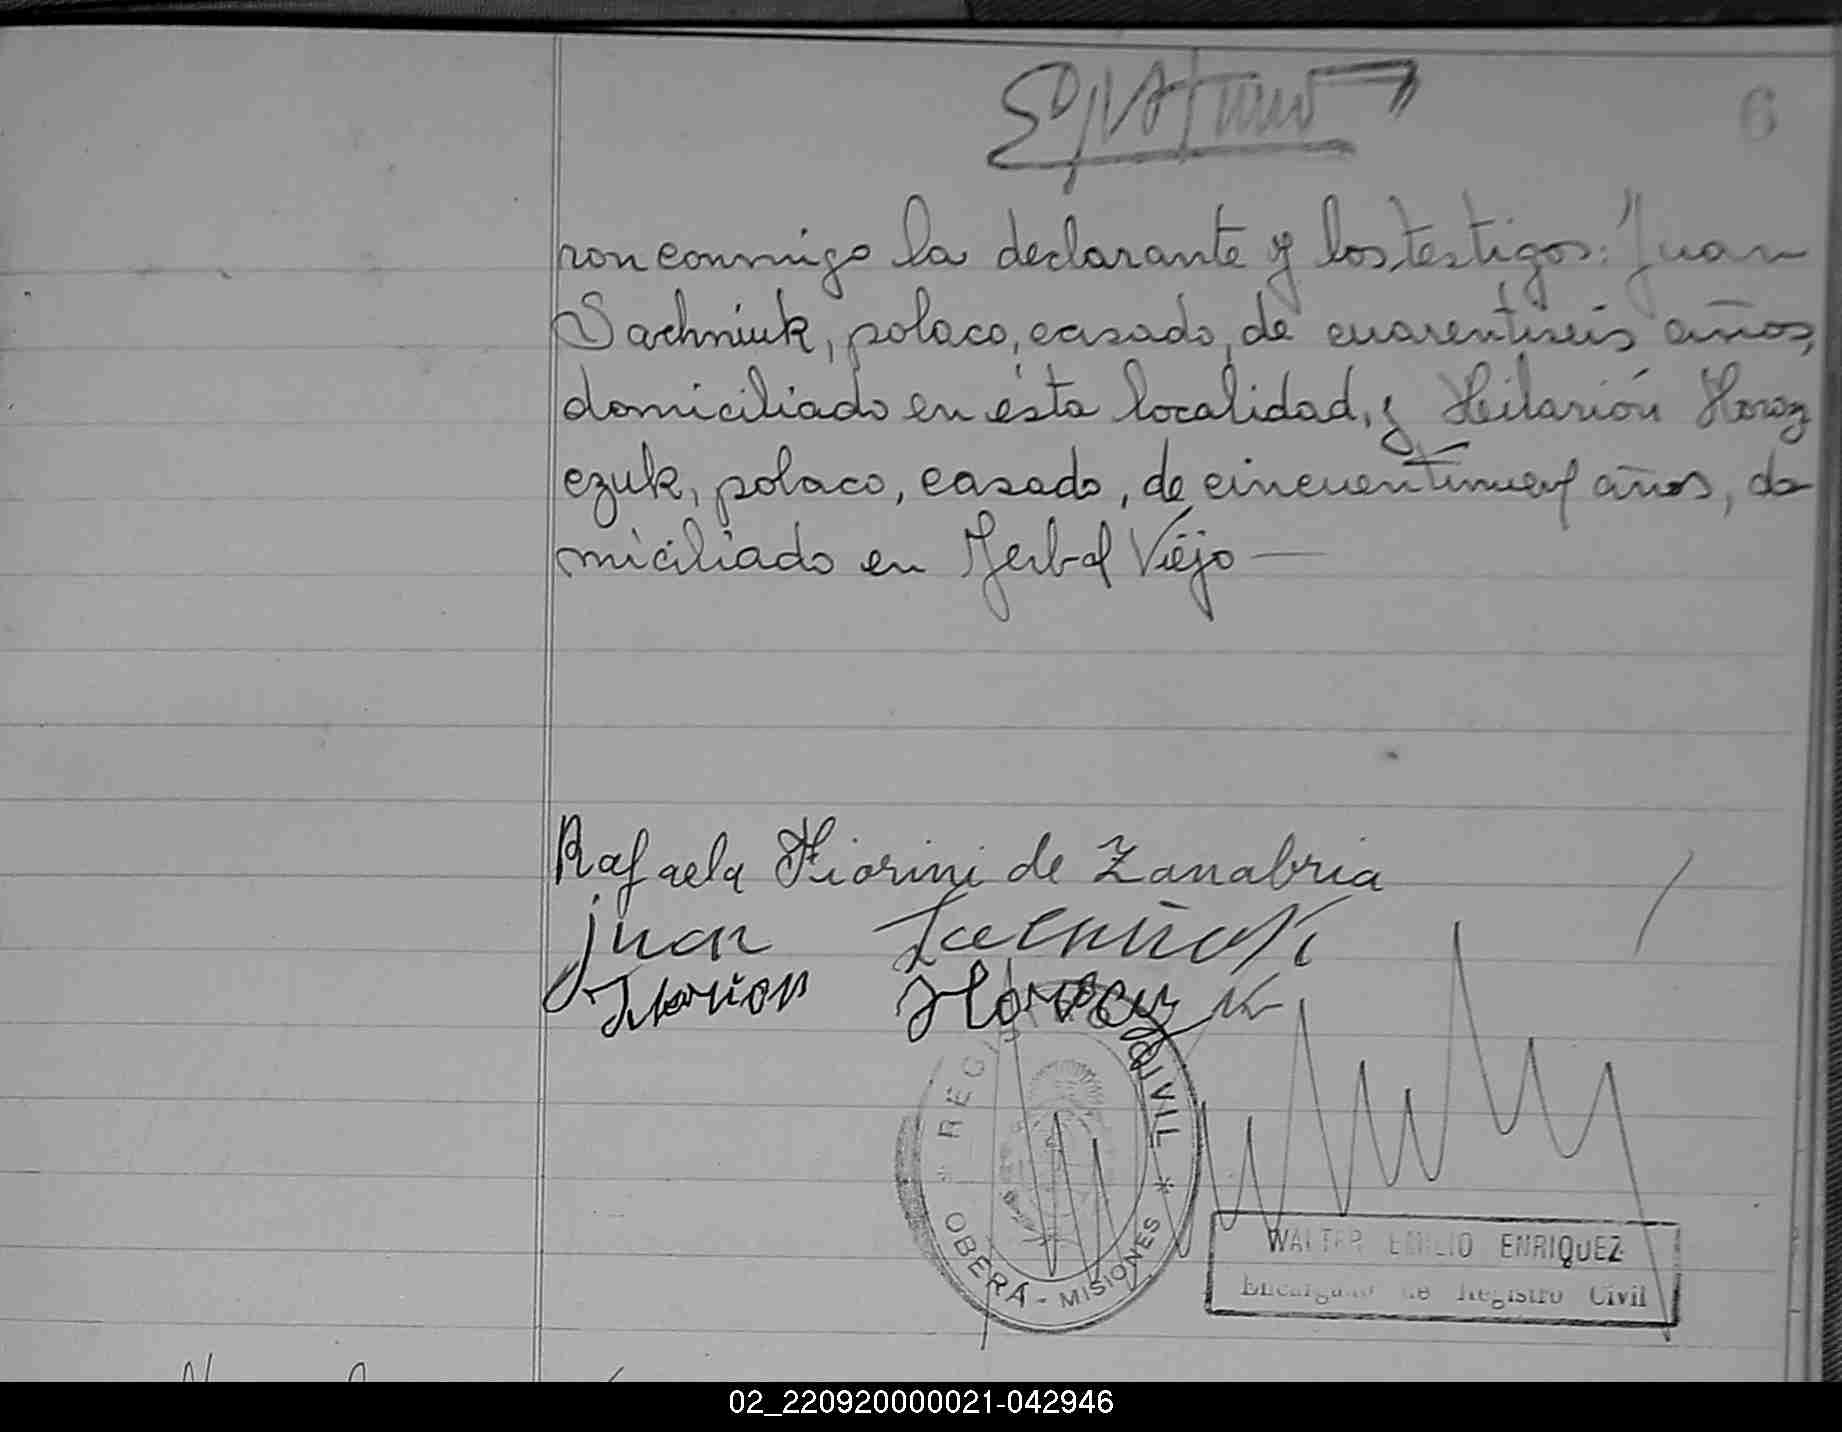 6
ron conmigo la declarante y los testigos: Juan
Sachniuk, polaco, casado, de cuarentiseis años,
domiciliado en ésta localidad, y Hilarión Horoz
czuk, polaco, casado, de cincuentinueve años, do
miciliado en Yerbal Viejo —
Rafaela Fiorini de Zanabria
juan
REG CIVIL
* OBERÁ - MISIONES *
WALTER EMILIO ENRIQUEZ
Encargado de Registro Civil
02_220920000021-042946